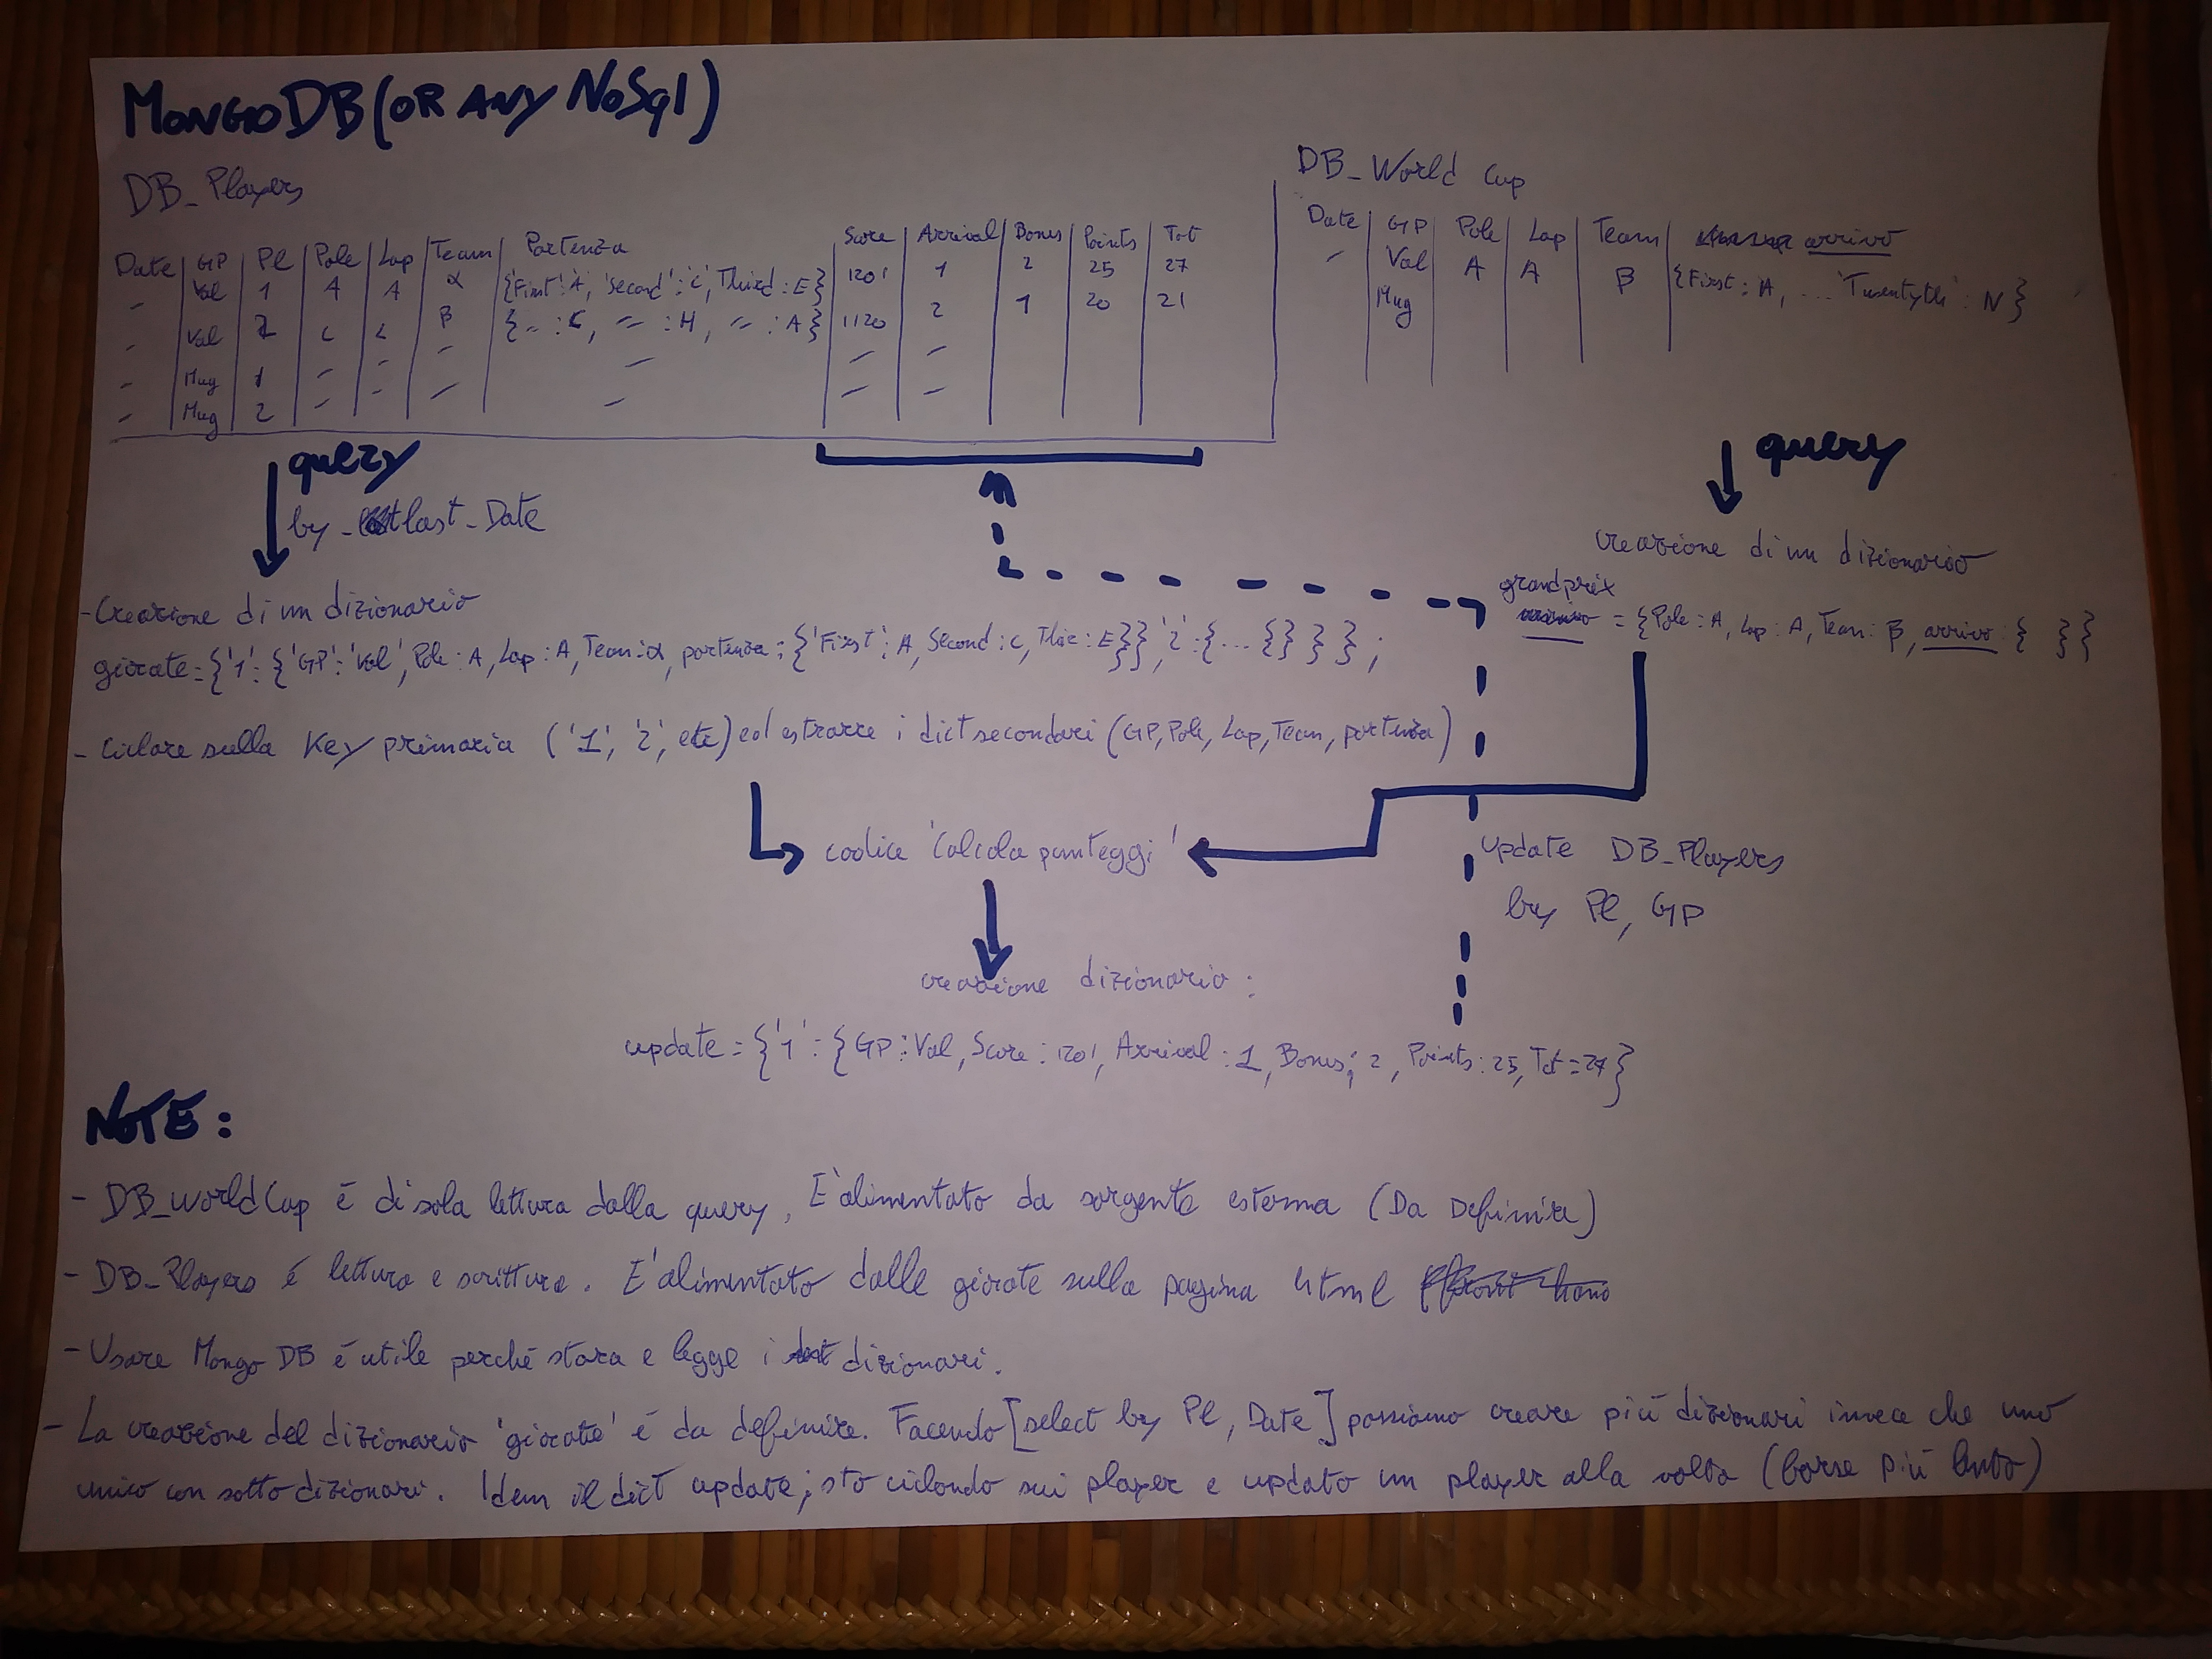 MONGODB (OR ANY NoSql)
DB_Players
Date | GP | Pl | Pole | Lap | Team | Partenza | Score | Arrival | Bonus | Points | Tot
- | Val | 1 | A | A | α | {'First':A, 'Second':'C', Third:E} | 1201 | 1 | 2 | 25 | 27
- | Val | 2 | C | C | β | {= : C, = : H, = : A} | 1120 | 2 | 1 | 20 | 21
- | Mug | 1 | - | - | - | - | - | -
- | Mug | 2 | - | - | - | - | - | -
DB_World Cup
Date | GP | Pole | Lap | Team | arrivo
- | Val | A | A | β | {First : A, ... 'Twentyth' : N}
Mug
query
by _ last_Date
- Creazione di un dizionario
giocate = {'1': {'GP':'Val', Pole : A, Lap : A, Team:α, partenza : {'First': A, Second : C, Thir : E}}, '2' : {... {} } } ;
- Ciclare sulla Key primaria ('1', '2', etc) ed estrarre i dict secondari (GP, Pole, Lap, Team, partenza)
query
creazione di un dizionario
grandprix
= {Pole : A, Lap : A, Team : β, arrivo : { }}
codice 'Calcola punteggi'
update DB_Players
by Pl, GP
creazione dizionario :
update = {'1' : {GP : Val, Score : 1201, Arrival : 1, Bonus : 2, Points : 25, Tot = 27}
NOTE :
- DB_WorldCup é di sola lettura dalla query, E' alimentato da sorgente esterna (Da Definire)
- DB_Players é lettura e scrittura. E' alimentato dalle giocate sulla pagina html
- Usare Mongo DB é utile perché stora e legge i dizionari.
- La creazione del dizionario 'giocate' é da definire. Facendo [select by Pl, Date] possiamo creare piú dizionari invece che uno
unico con sotto dizionari. Idem il dict update; sto ciclando sui player e updato un player alla volta (forse piú lento)